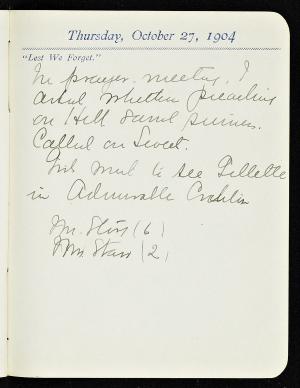 Thursday, October 27, 1904
"Lest We Forget."
In prayer-meeting, I
asked whether preaching
on Hell saved sinners.
Called on Sweet.
went to see Gillette
in Admirable Crichton
Mr. (6)
Mrs Starr (2)